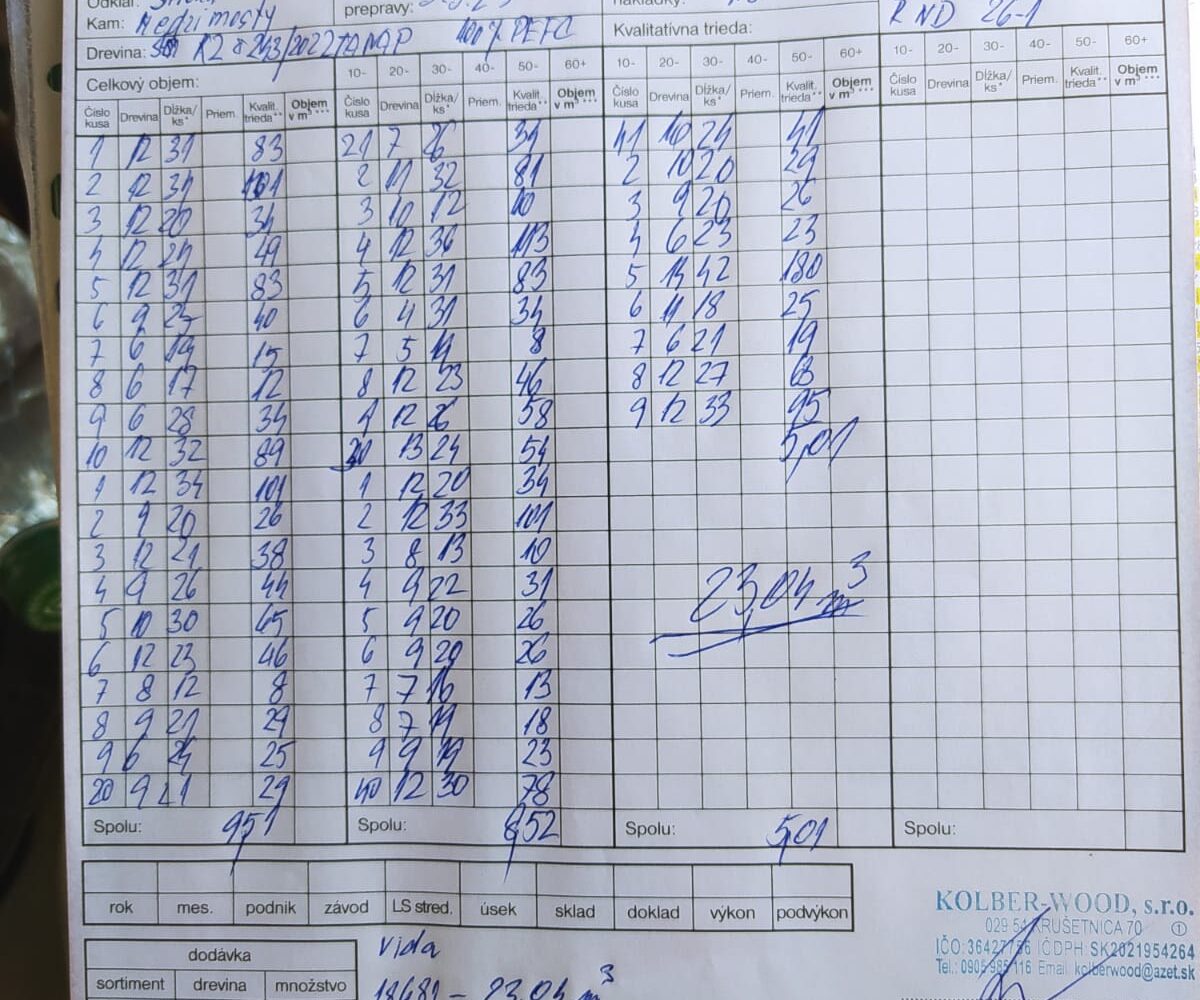 Kam: Medzimosty
prepravy:
Kvalitatívna trieda:
R ND 26-1
Drevina: 100% PEFC
Celkový objem:
10- 20- 30- 40- 50- 60+ 10- 20- 30- 40- 50- 60+ 10- 20- 30- 40- 50- 60+
Číslo kusa Drevina Dĺžka/ ks* Priem. Kvalit. trieda** Objem v m³ *** Číslo kusa Drevina Dĺžka/ ks* Priem. Kvalit. trieda** Objem v m³ *** Číslo kusa Drevina Dĺžka/ ks* Priem. Kvalit. trieda** Objem v m³ *** Číslo kusa Drevina Dĺžka/ ks* Priem. Kvalit. trieda** Objem v m³ ***
1 12 31 83 21 7 26 34 41 10 24 41
2 12 34 101 2 11 32 81 2 10 20 29
3 12 20 34 3 10 12 10 3 9 20 26
4 12 24 49 4 12 36 113 4 6 23 23
5 12 31 83 5 12 31 83 5 14 42 180
6 9 25 40 6 4 31 34 6 11 18 25
7 6 19 15 7 5 14 8 7 6 21 19
8 6 17 12 8 12 23 46 8 12 27 63
9 6 28 34 9 12 26 58 9 12 33 95
10 12 32 89 30 13 24 54 5,01
1 12 34 101 1 12 20 34
2 9 20 26 2 12 33 101
3 12 21 38 3 8 13 10
4 9 26 44 4 9 22 31 23,04 m³
5 10 30 65 5 9 20 26
6 12 23 46 6 9 20 26
7 8 12 8 7 7 16 13
8 9 21 29 8 7 19 18
9 6 24 25 9 9 19 23
20 9 21 29 40 12 30 78
Spolu: 9,51 Spolu: 8,52 Spolu: 5,01 Spolu:
rok mes. podnik závod LS stred. úsek sklad doklad výkon podvýkon
KOLBER-WOOD, s.r.o.
029 54 KRUŠETNICA 70
IČO: 36427756 IČDPH: SK2021954264
Tel.: 0905 985 116 Email: kolberwood@azet.sk
dodávka
sortiment drevina množstvo
Vida
18689 - 23,04 m³